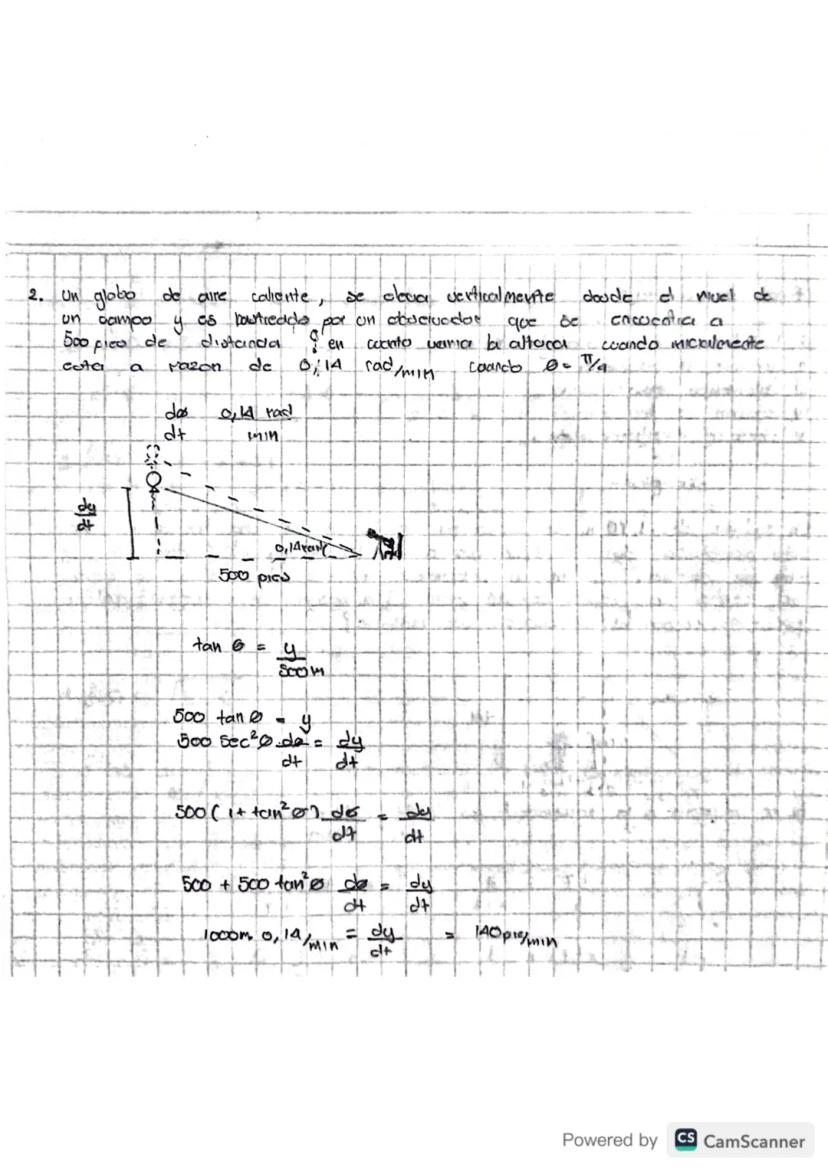 2. un globo de aire caliente, se eleva verticalmente desde el nivel de
un campo y es rastreado por un observador que se encuentra a
500 pies de distancia ¿ en cuanto varia la altura cuando inicialmente
esta a razon de 0,14 rad/min cuando θ = π/4
dθ 0,14 rad
dt min
dy
dt
0,14rad
500 pies
tan θ = y
500m
500 tan θ = y
500 sec²θ dθ = dy
dt dt
500 (1 + tan²θ) dθ = dy
dt dt
500 + 500 tan²θ dθ = dy
dt dt
1000m 0,14/min = dy = 140 pie/min
dt
Powered by CS CamScanner